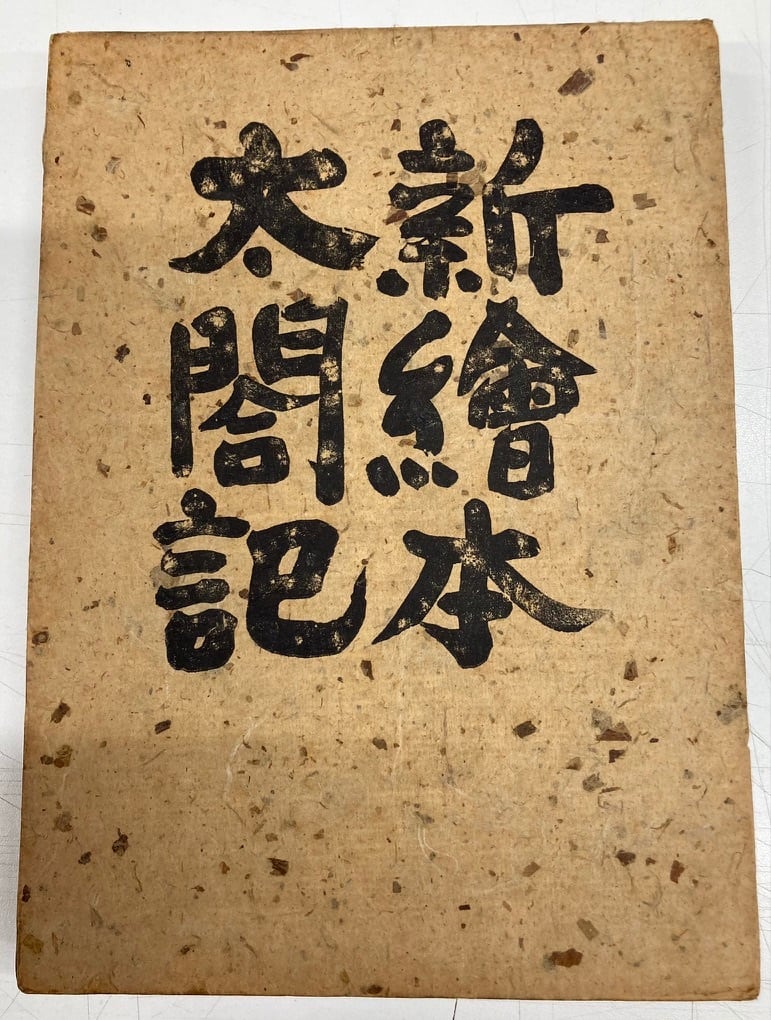 新繪本
太閤記